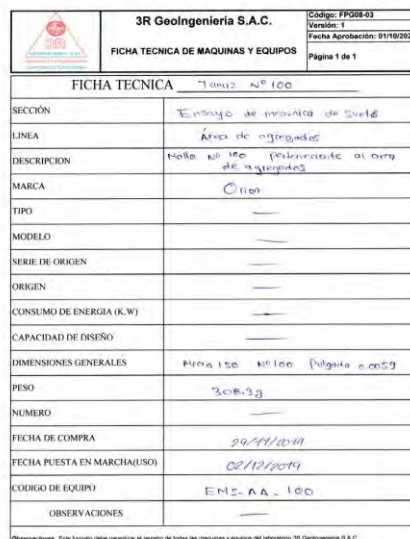 3R GeoIngenieria S.A.C.
FICHA TECNICA DE MAQUINAS Y EQUIPOS
Código: FPG08-03
Versión: 1
Fecha Aprobación: 01/10/202
Página 1 de 1
FICHA TECNICA Tamiz Nº 100
SECCIÓN Ensayo de mecánica de suelo
LINEA Área de agregados
DESCRIPCION Malla Nº 100 perteneciente al area de agregados
MARCA Orion
TIPO —
MODELO —
SERIE DE ORIGEN —
ORIGEN —
CONSUMO DE ENERGIA (K.W) —
CAPACIDAD DE DISEÑO —
DIMENSIONES GENERALES Micra 150 Nº 100 Pulgada 0.0059
PESO 308.3g
NUMERO —
FECHA DE COMPRA 29/11/2019
FECHA PUESTA EN MARCHA(USO) 02/12/2019
CODIGO DE EQUIPO EMS-AA-100
OBSERVACIONES —
Observaciones: Este formato debe garantizar el registro de todas las maquinas y equipos del laboratorio 3R GeoIngenieria S.A.C.